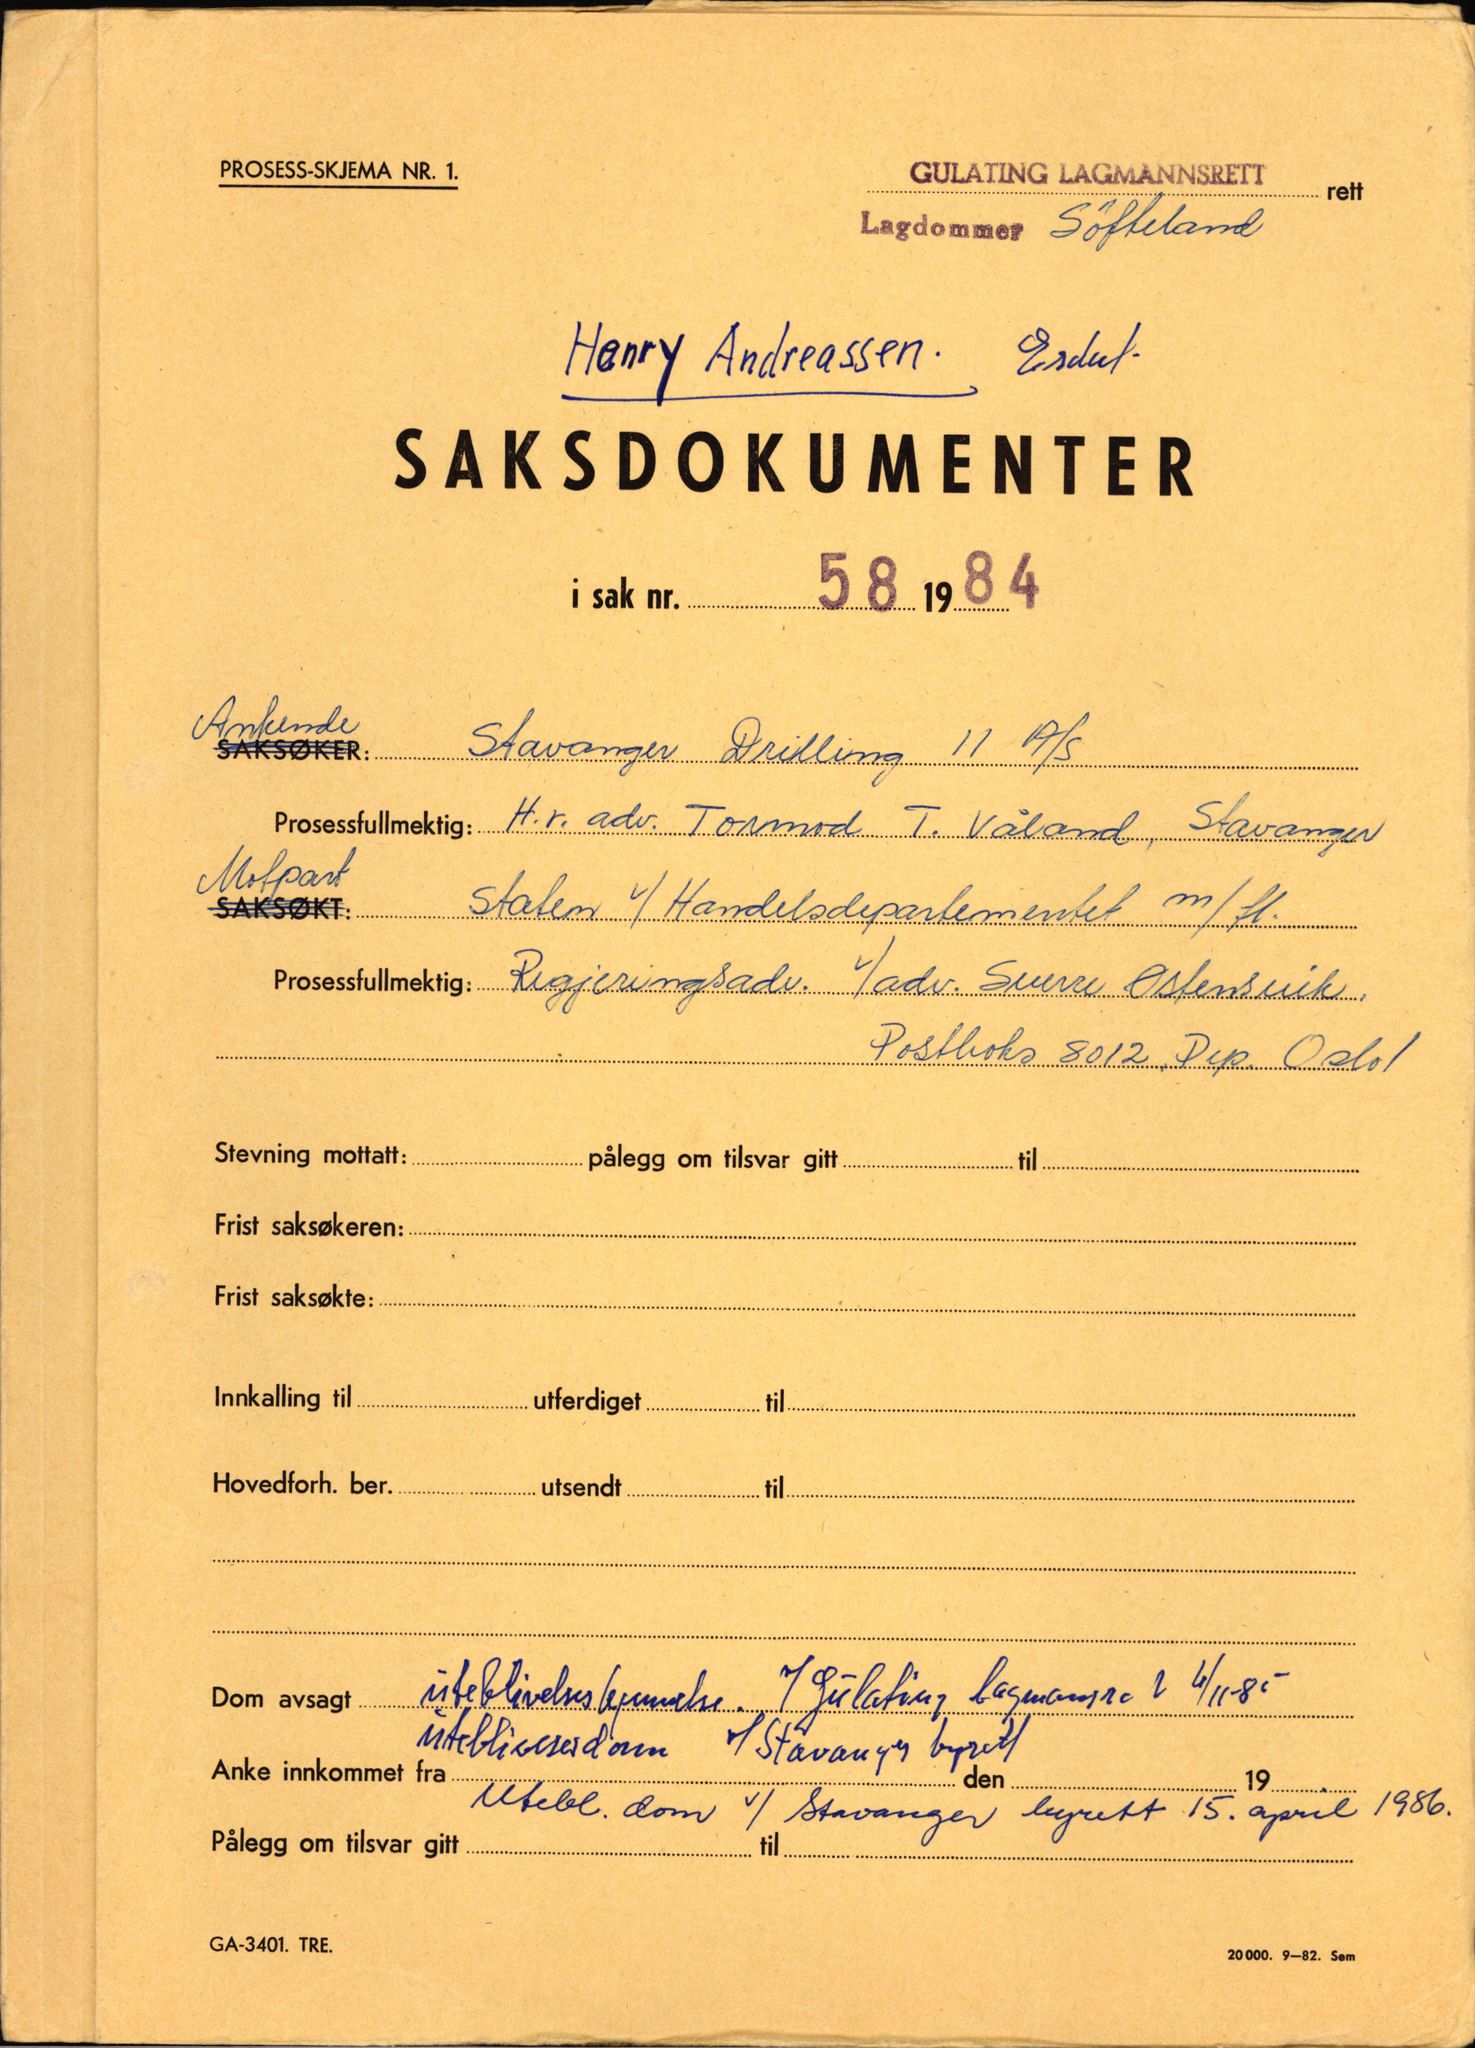 PROSESS-SKJEMA NR. 1.
GULATING LAGMANNSRETT rett
Lagdommer Söfteland
Henry Andreassen.
SAKSDOKUMENTER
i sak nr. 58 1984
Ankende
SAKSØKER: Stavanger Drilling II A/S
Prosessfullmektig: H.r. adv. Tormod T. Våland, Stavanger
Motpart
SAKSØKT: Staten v/ Handelsdepartementet m/fl.
Prosessfullmektig: Regjeringsadv. v/adv. Sverre Østensvik,
Postboks 8012, Dep. Oslo 1
Stevning mottatt: pålegg om tilsvar gitt til
Frist saksøkeren:
Frist saksøkte:
Innkalling til utferdiget til
Hovedforh. ber. utsendt til
Dom avsagt uteblivelseskjennelse. v/Gulating lagmannsrett
uteblivelsesdom v/Stavanger byrett
Anke innkommet fra den 19
Utebl. dom v/ Stavanger byrett 15. april 1986.
Pålegg om tilsvar gitt til
GA-3401. TRE.
20 000. 9–82. Sem